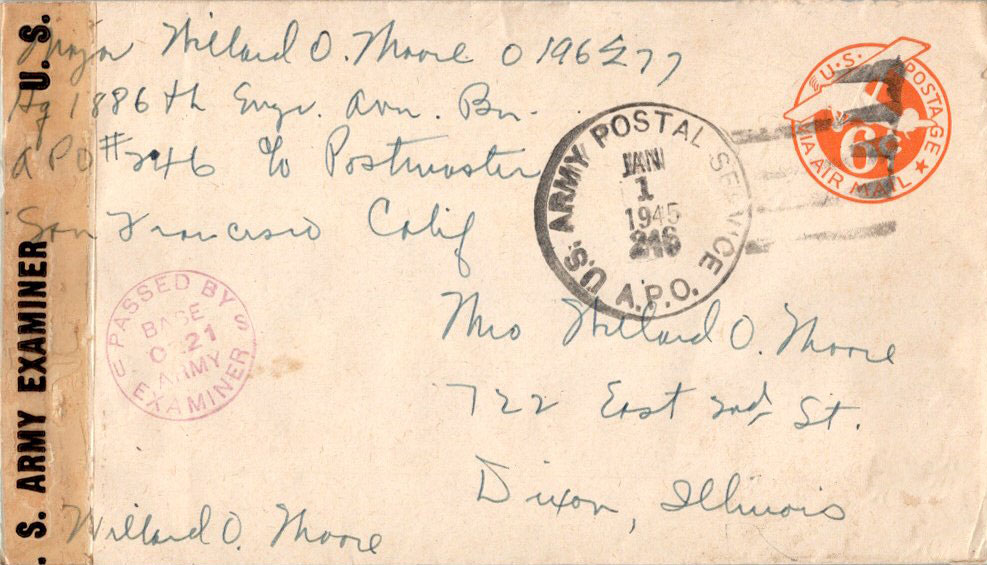 Major Willard O. Moore O 196577
Hq 1886th Engr. Avn. Bn.
APO #246 c/o Postmaster
San Francisco Calif
U.S. ARMY POSTAL SERVICE
JAN
1
1945
246
A.P.O.
U.S. POSTAGE
6¢
VIA AIR MAIL
U. S.
S. ARMY EXAMINER
PASSED BY
BASE
ARMY
EXAMINER
U S
Mrs Willard O. Moore
722 East 2nd St.
Dixon, Illinois
Willard O. Moore